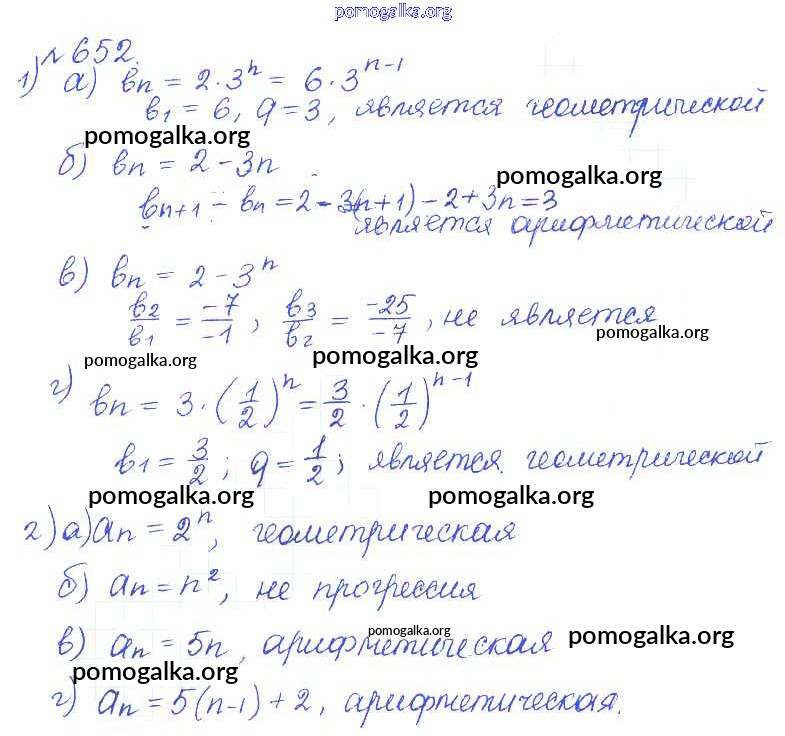 pomogalka.org
№652.
1) а) bn = 2·3^n = 6·3^(n-1)
b1 = 6, q = 3, является геометрической
pomogalka.org
б) bn = 2 - 3n
pomogalka.org
bn+1 - bn = 2 - 3(n+1) - 2 + 3n = 3
является арифметической
в) bn = 2 - 3^n
b2/b1 = -7/-1, b3/b2 = -25/-7, не является
pomogalka.org
pomogalka.org
pomogalka.org
г) bn = 3·(1/2)^n = 3/2·(1/2)^(n-1)
b1 = 3/2; q = 1/2; является геометрической
pomogalka.org
pomogalka.org
2) а) an = 2^n, геометрическая
б) an = n², не прогрессия
pomogalka.org
в) an = 5n, арифметическая
pomogalka.org
pomogalka.org
г) an = 5(n-1) + 2, арифметическая.